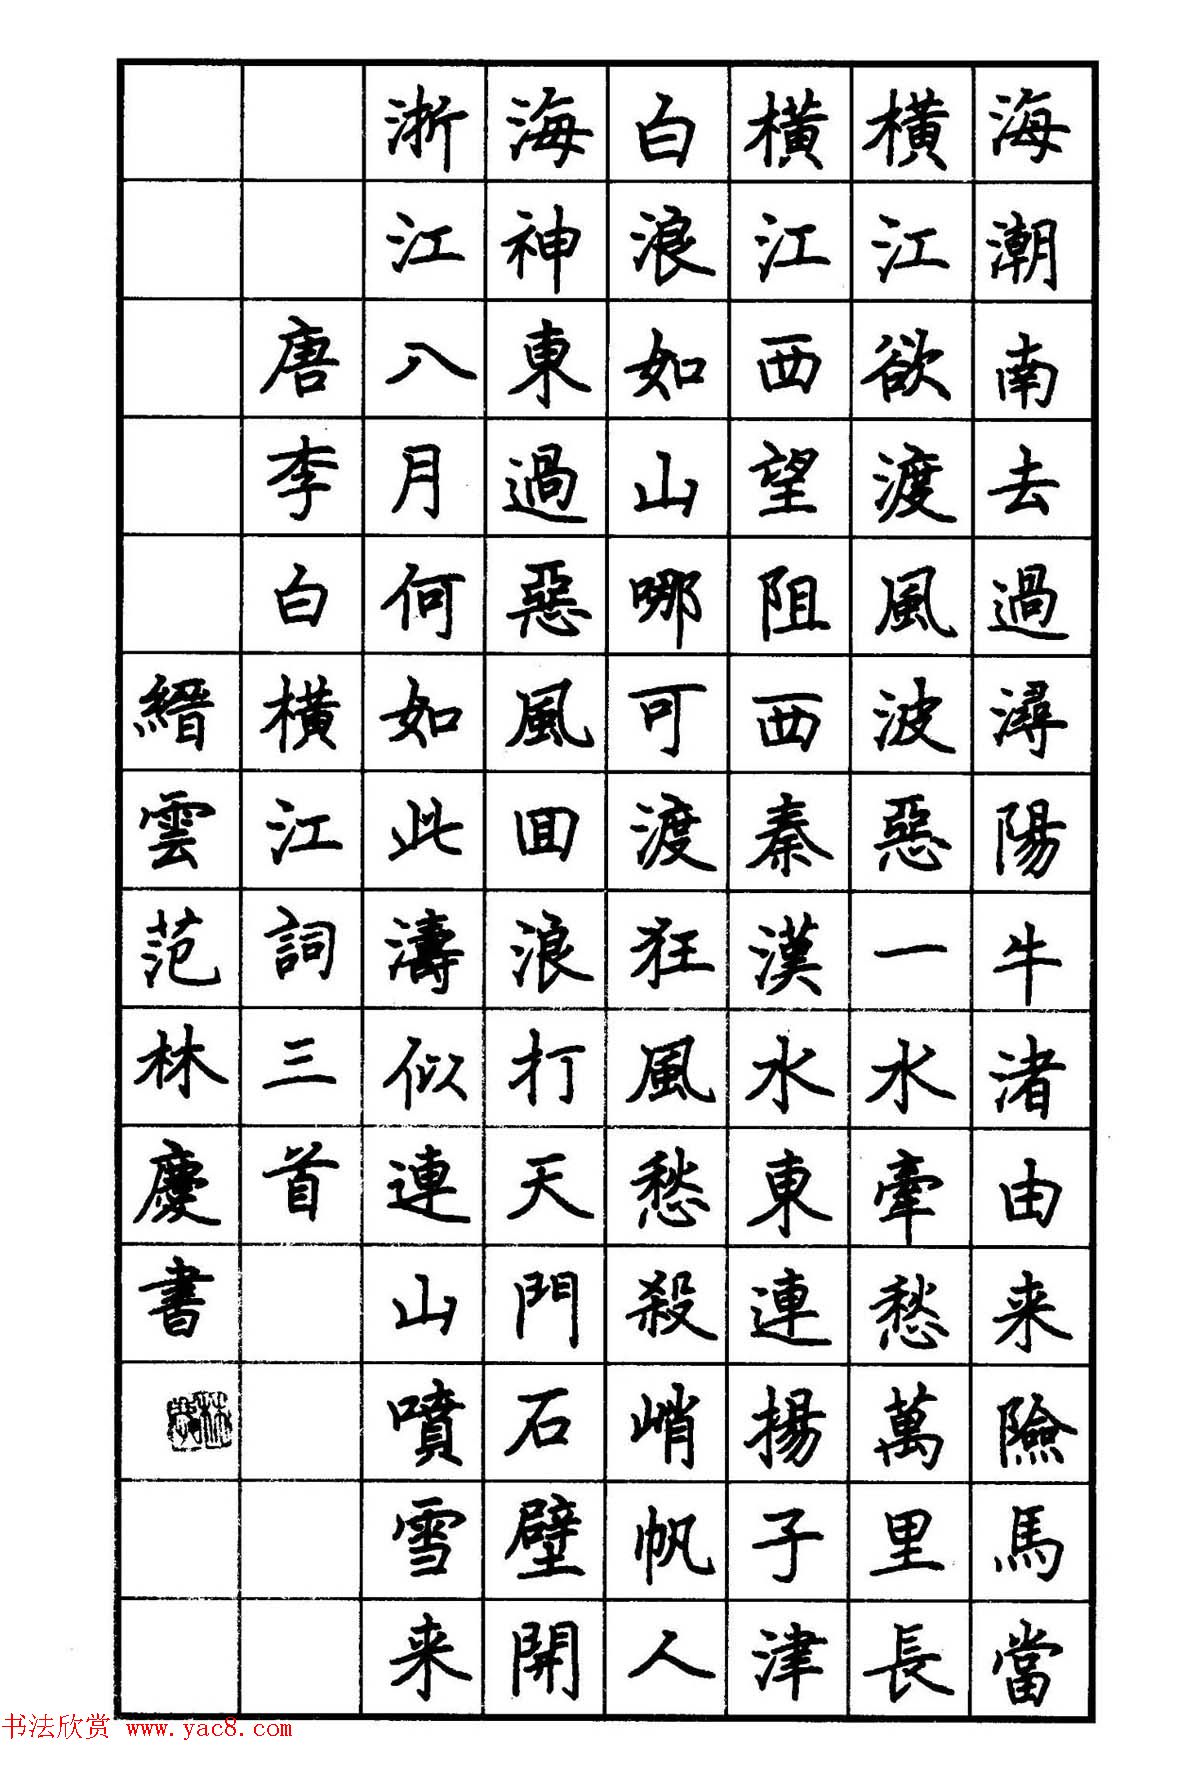 海潮南去過潯陽牛渚由来險馬當
橫江欲渡風波惡一水牽愁萬里長
橫江西望阻西秦漢水東連揚子津
白浪如山哪可渡狂風愁殺峭帆人
海神東過惡風回浪打天門石壁開
浙江八月何如此濤似連山噴雪来
唐李白橫江詞三首
縉雲范林慶書
林慶
书法欣赏 www.yac8.com